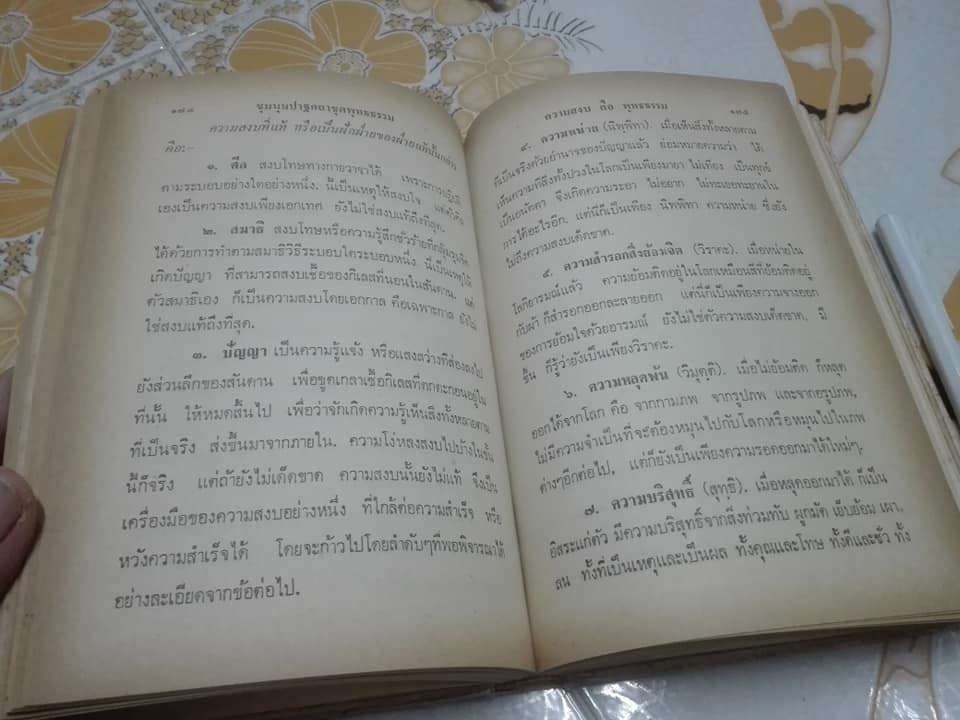 ๑๗๔ ชุมนุมปาฐกถาชุดพุทธธรรม
ความสงบที่แท้ หรือเป็นฝักฝ่ายของฝ่ายแท้นั้นกล่าว
คือ:-
๑. ศีล สงบโทษทางกายวาจาได้ เพราะการปฏิบัติ
ตามระบอบอย่างใดอย่างหนึ่ง. นี้เป็นเหตุให้สงบใจ แต่ตัวศีล
เองเป็นความสงบเพียงเอกเทศ ยังไม่ใช่สงบแท้ถึงที่สุด.
๒. สมาธิ สงบโทษหรือความรู้สึกชั่วร้ายที่
ได้ด้วยการทำตามสมาธิวิธีระบอบใดระบอบหนึ่ง นี่เป็นเหตุให้
เกิดปัญญา ที่สามารถสงบเชื้อของกิเลสที่นอนในสันดาน. แต่
ตัวสมาธิเอง ก็เป็นความสงบโดยเอกกาล คือเฉพาะกาล ยังไม่
ใช่สงบแท้ถึงที่สุด.
๓. ปัญญา เป็นความรู้แจ้ง หรือแสงสว่างที่ส่องลงไป
ยังส่วนลึกของสันดาน เพื่อขูดเกลาเชื้อกิเลสที่ตกตะกอนอยู่ใน
ที่นั้น ให้หมดสิ้นไป เพื่อว่าจักเกิดความรู้เห็นสิ่งทั้งหลายตาม
ที่เป็นจริง ส่งขึ้นมาจากภายใน. ความโง่หลงสงบไปบ้างในขั้น
นี้ก็จริง แต่ถ้ายังไม่เด็ดขาด ความสงบนั้นยังไม่แท้ จึงเป็น
เครื่องมือของความสงบอย่างหนึ่ง ที่ใกล้ต่อความสำเร็จ หรือ
หวังความสำเร็จได้ โดยจะก้าวไปโดยลำดับๆที่พอพิจารณาได้
อย่างละเอียดจากข้อต่อไป.
ความสงบ คือ พุทธธรรม ๑๗๕
๔. ความหน่าย (นิพฺพิทา). เมื่อเห็นสิ่งทั้งหลายตาม
ที่เป็นจริงด้วยอำนาจของปัญญาแล้ว ย่อมหมายความว่า ได้
เห็นความที่สิ่งทั้งปวงในโลกเป็นเพียงมายา ไม่เที่ยง เป็นทุกข์
เป็นอนัตตา จึงเกิดความระอา ไม่อยาก ไม่ทะเยอทะยานใน
การได้อะไรอีก. แต่นี่ก็เป็นเพียง นิพพิทา ความหน่าย ซึ่งยัง
ไม่ถึงความสงบเด็ดขาด.
๕. ความสำรอกสิ่งย้อมจิต (วิราคะ). เมื่อหน่ายใน
โลกิยารมณ์แล้ว ความย้อมติดอยู่ในโลกเหมือนสีที่ย้อมติดอยู่
กับผ้า ก็สำรอกออกละลายออก แต่นี่ก็เป็นเพียงความจางออก
ของการย้อมใจด้วยอารมณ์ ยังไม่ใช่ตัวความสงบเด็ดขาด, มี
ขึ้น ก็รู้ว่ายังเป็นเพียงวิราคะ.
๖. ความหลุดพ้น (วิมุตฺติ). เมื่อไม่ย้อมติด ก็หลุด
ออกได้จากโลก คือ จากกามภพ จากรูปภพ และจากอรูปภพ,
ไม่มีความจำเป็นที่จะต้องหมุนไปกับโลกหรือหมุนไปในภพ
ต่างๆอีกต่อไป, แต่ก็ยังเป็นเพียงความรอดออกมาได้ใหม่ๆ.
๗. ความบริสุทธิ์ (สุทฺธิ). เมื่อหลุดออกมาได้ ก็เป็น
อิสระแก่ตัว มีความบริสุทธิ์จากสิ่งท่วมทับ ผูกมัด เย็บย้อม เผา,
ลน ทั้งที่เป็นเหตุและเป็นผล ทั้งคุณและโทษ ทั้งดีและชั่ว ทั้ง